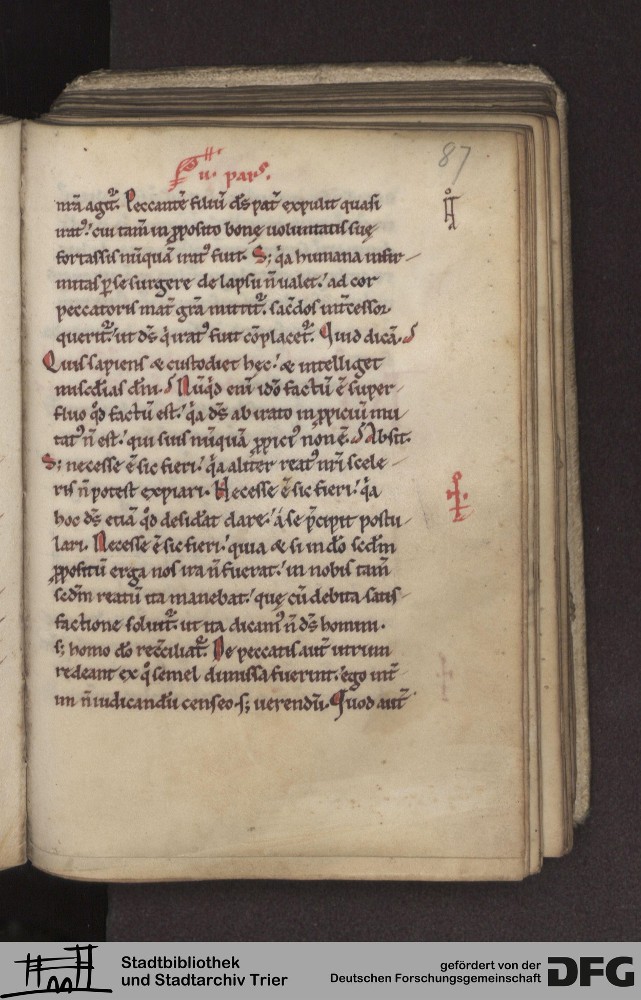 87
ii. pars.
nr̄a agit᷑. Peccantē filiū d̄s pat̄ expulit quasi
irat᷒. cui tam̄ in ꝓposito bonę uoluntatis suę
fortassis nūquā irat᷒ fuit. S; q̇a humana infir-
mitas ꝑ se surgere de lapsu n̄ ualet. ad cor
peccatoris mat̄ gr̄a mittit᷑. sac̄dos int̄cessor
querit᷑. ut d̄s q̇ irat᷒ fuit cōplacet᷑. Quid dicā.
Quis sapiens & custodiet hec. & intelliget
misc̄dias dn̄i. Nūq̇d enī ido̅ factū ē super-
fluo q̇d factū est. q̇a d̄s ab irato in ꝓpiciū mu-
tat᷒ n̄ est. qui suis nūquā ꝓpici᷒ n̄ ē. Absit.
S; necesse ē sic fieri. q̇a alit̄er reat᷒ nr̄i scele-
ris n̄ potest expiari. Necesse ē sic fieri. q̇a
hoc d̄s etiā q̇d desid̄at dare. a se p̄cipit postu-
lari. Necesse ē sic fieri. quia & si in dō sc̄dm
ꝓpositū erga nos ira n̄ fuerat. in nobis tam̄
sc̄dm reatū ita manebat. quę cū debita satis-
factione soluit᷑. ut ita dicam᷒ n̄ d̄s homini.
s; homo dō rec̄ciliat᷑. De peccatis aut̄ utrum
redeant ex q̊ semel dimissa fuerint. ego int̄
im n̄ iudicandū censeo. s; uerendū. Quod aut̄
Stadtbibliothek
und Stadtarchiv Trier
gefördert von der
Deutschen Forschungsgemeinschaft
DFG